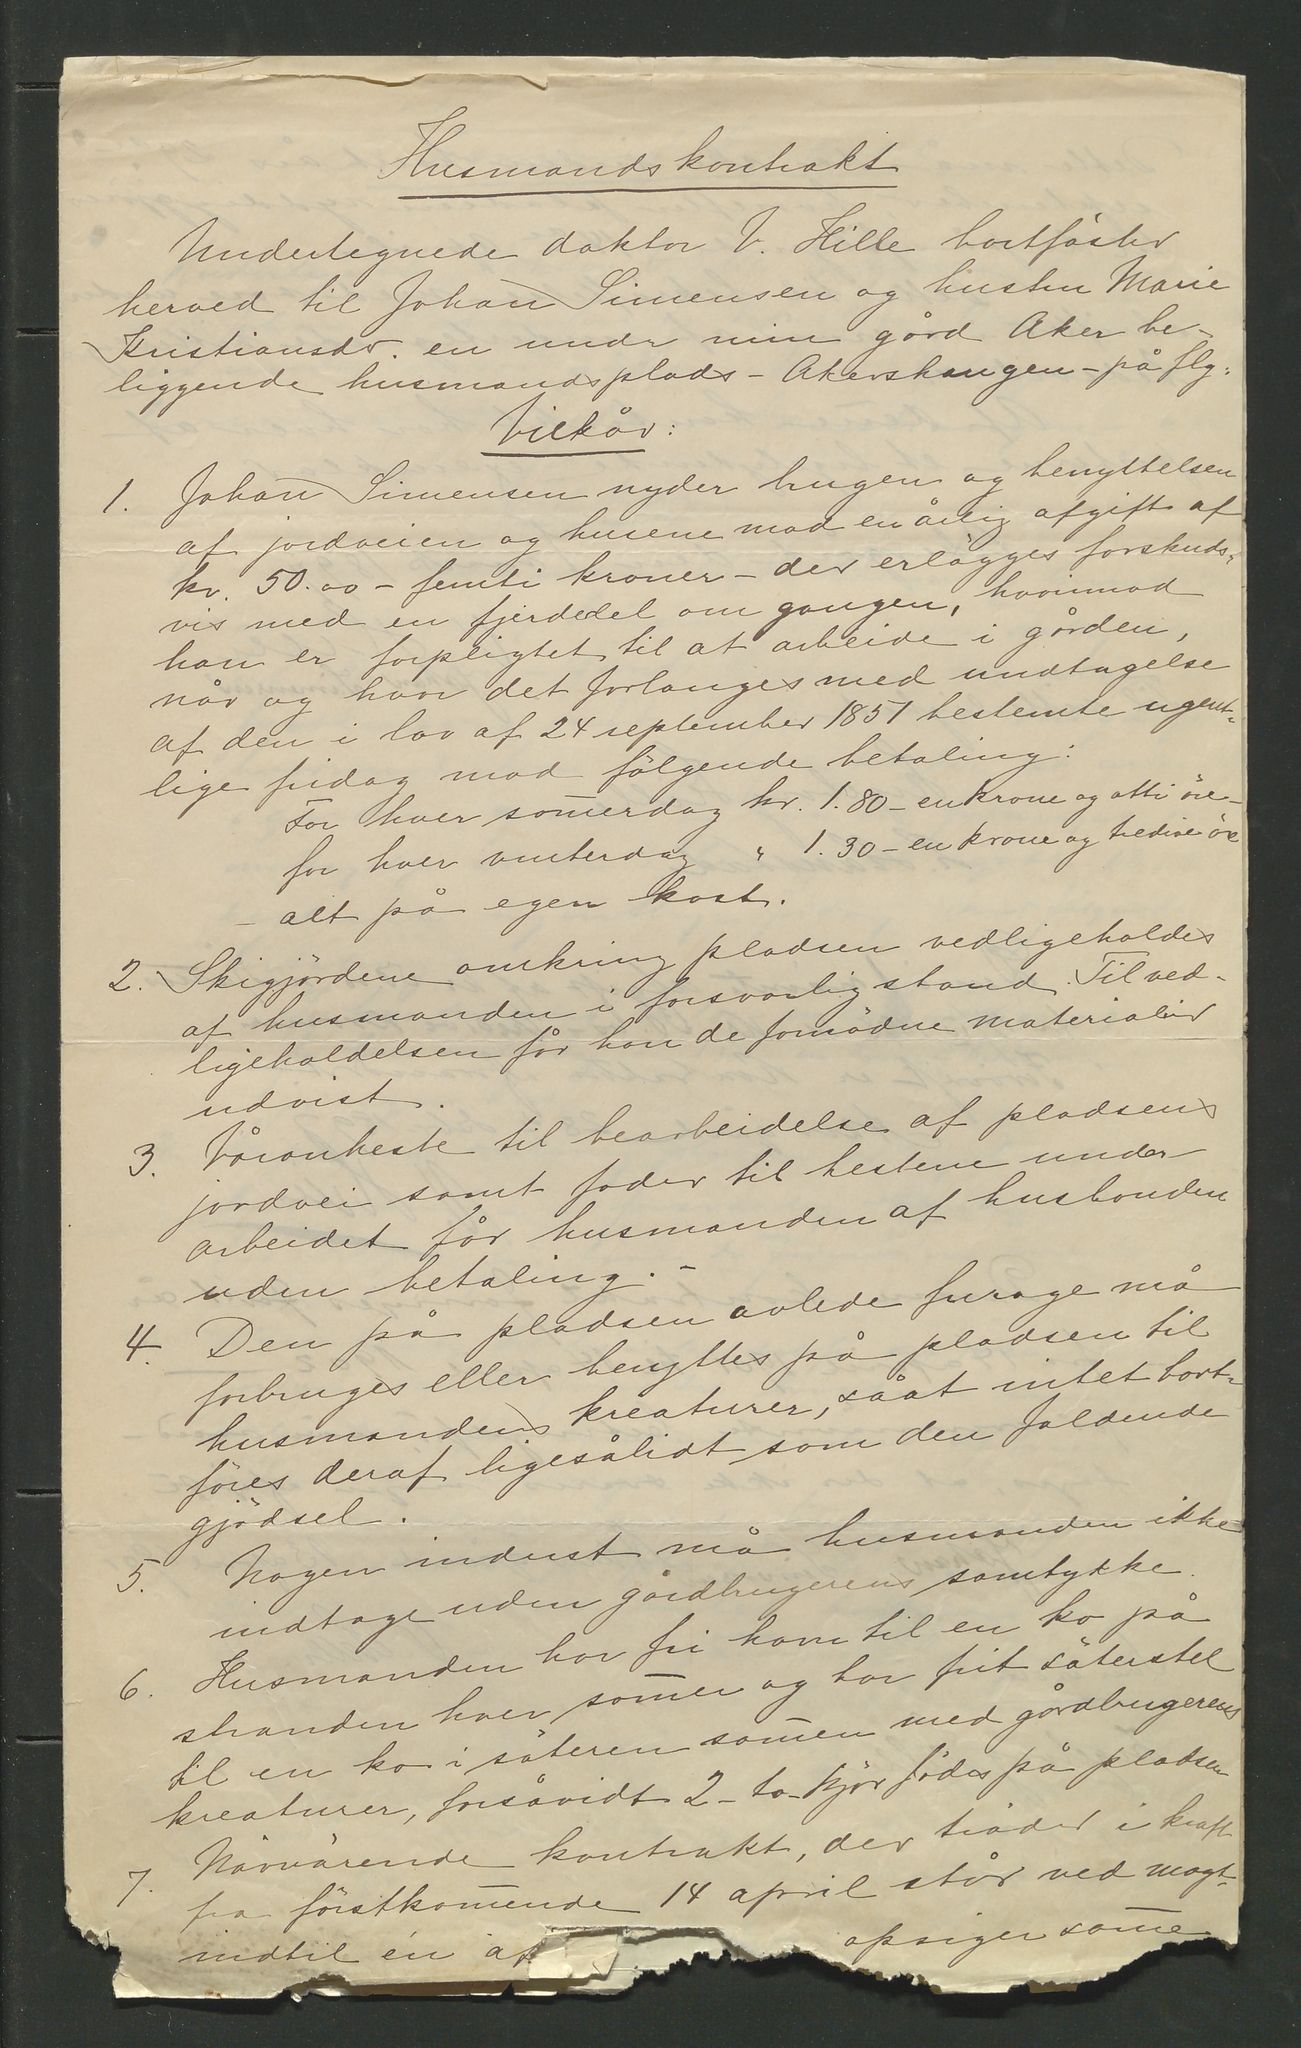 Husmandskontrakt
Undertegnede doktor V. Hille bortfäster
herved til Johan Simensen og hustru Marie
Kristiansdr. en under min gård Aker be-
liggende husmandsplads - Akershaugen - på flg:
Vilkår:
1. Johan Simensen nyder brugen og benyttelsen
af jordveien og husene mod en årlig afgift af
kr. 50.00 - femti kroner - der erlägges forskuds-
vis med en fjerdedel om gangen, hvorimod
han er forpligtet til at arbeide i gården,
når og hvor det forlanges med undtagelse
af den i lov af 24 september 1851 bestemte ugent-
lige fridag mod fölgende betaling:
For hver som̅erdag kr. 1.80 - en krone og otti öre -
for hver vinterdag " 1.30 - en krone og tredive öre
- alt på egen kost.
2. Skigjördene omkring pladsen vedligeholdes
af husmanden i forsvarlig stand. Til ved-
ligeholdelsen får han de fornödne materialier
udvist.
3. Våronheste til bearbeidelse af pladsens
jordvei samt foder til hestene under
arbeidet får husmanden af husbonden
uden betaling. -
4. Den på pladsen avlede furage må
forbruges eller benyttes på pladsen til
husmandens kreaturer, såat intet bort-
föres deraf ligesålidt som den faldende
gjödsel.
5. Nogen inderst må husmanden ikke
indtage uden gårdbrugerens samtykke.
6. Husmanden har fri havn til en ko på
stranden hver som̅er og har frit säterstel
til en ko i säteren sam̅en med gårdbrugerens
kreaturer, forsåvidt 2 - to - kjör födes på pladsen
7. Närvärende kontrakt, der träder i kraft
fra förstkom̅ende 14 april står ved magt
indtil én af opsiger sam̅e